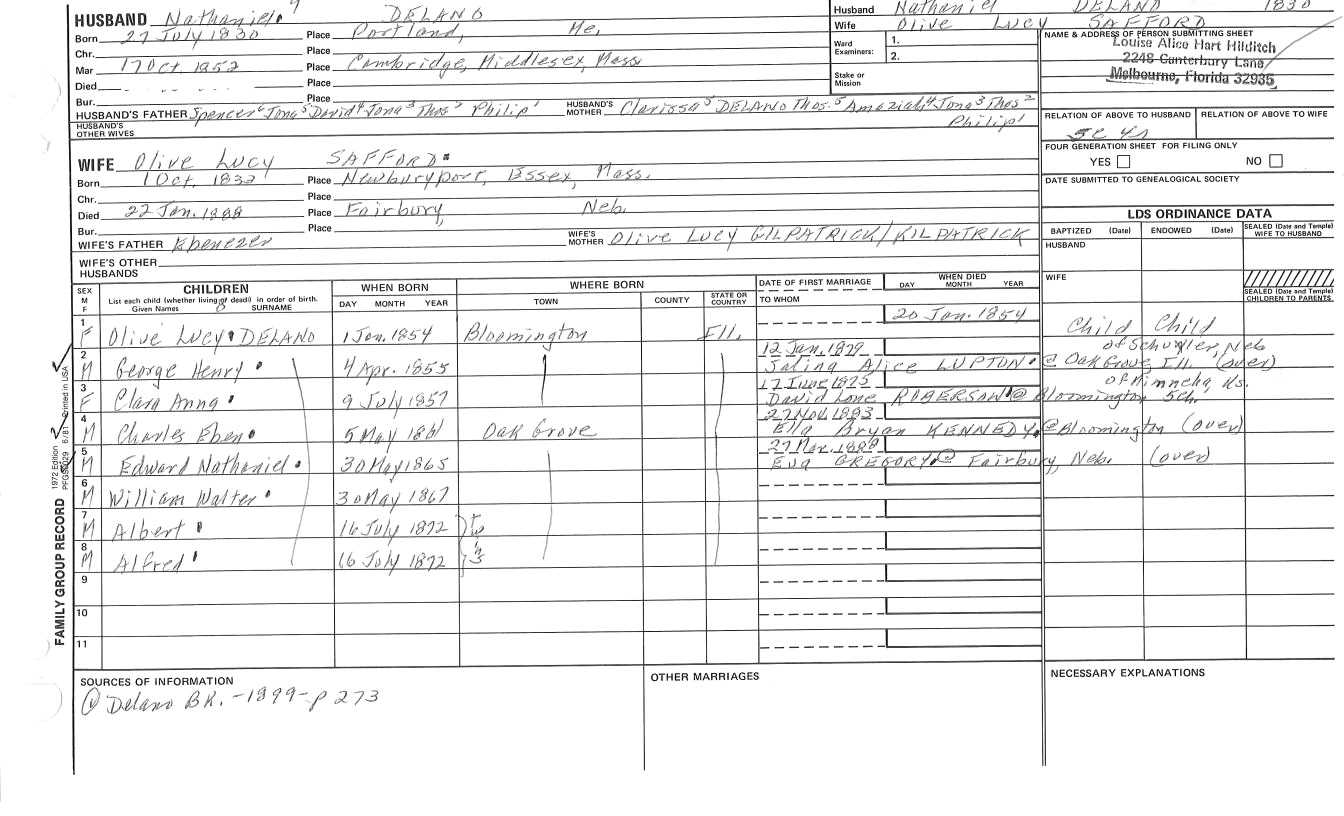 HUSBAND Nathaniel 7 DELANO
Born 27 July 1830 Place Portland, Me.
Chr. Place
Mar 17 Oct 1852 Place Cambridge, Middlesex, Mass.
Died Place
Bur. Place
HUSBAND'S FATHER Spencer 6 Jona 5 David 4 Jona 3 Thos 2 Philip 1 HUSBAND'S MOTHER Clarissa 5 DELANO Thos. 5 Amaziah 4 Jona 3 Thos 2
Philip 1
HUSBAND'S OTHER WIVES
Husband Nathaniel DELANO 1830
Wife Olive Lucy SAFFORD
Ward Examiners: 1.
2.
Stake or Mission
NAME & ADDRESS OF PERSON SUBMITTING SHEET
Louise Alice Hart Hilditch
2248 Canterbury Lane
Melbourne, Florida 32935
RELATION OF ABOVE TO HUSBAND RELATION OF ABOVE TO WIFE
FOUR GENERATION SHEET FOR FILING ONLY
YES NO
DATE SUBMITTED TO GENEALOGICAL SOCIETY
WIFE Olive Lucy SAFFORD
Born 1 Oct. 1832 Place Newburyport, Essex, Mass.
Chr. Place
Died 22 Jan. 1888 Place Fairbury, Neb.
Bur. Place
WIFE'S FATHER Ebenezer WIFE'S MOTHER Olive Lucy GILPATRICK/KILPATRICK
WIFE'S OTHER HUSBANDS
LDS ORDINANCE DATA
BAPTIZED (Date) ENDOWED (Date) SEALED (Date and Temple) WIFE TO HUSBAND
HUSBAND
WIFE
SEALED (Date and Temple) CHILDREN TO PARENTS
SEX M F CHILDREN WHEN BORN WHERE BORN DATE OF FIRST MARRIAGE WHEN DIED
List each child (whether living or dead) in order of birth. DAY MONTH YEAR TOWN COUNTY STATE OR COUNTRY TO WHOM DAY MONTH YEAR
Given Names 8 SURNAME
1 20 Jan. 1854
F Olive Lucy DELANO 1 Jan. 1854 Bloomington Ill. Child Child
2 12 Jan. 1879 of Schuyler, Neb
M George Henry 4 Apr. 1855 Salina Alice LUPTON @ Oak Grove, Ill. (over)
3 17 June 1875 of Minneha, Ks.
F Clara Anna 9 July 1857 David Lone ROBERSON @ Bloomington Sch.
4 27 Nov. 1883
M Charles Eben 5 May 1861 Oak Grove Ella Bryan KENNEDY @ Bloomington (over)
5 27 Mar. 1888
M Edward Nathaniel 30 May 1865 Eva GREGORY @ Fairbury, Neb. (over)
6
M William Walter 30 May 1867
7
M Albert 16 July 1872 Twins
8
M Alfred 16 July 1872
9
10
11
SOURCES OF INFORMATION OTHER MARRIAGES NECESSARY EXPLANATIONS
@ Delano BK. -1899- p 273
FAMILY GROUP RECORD 1972 Edition 6/81 Printed in USA